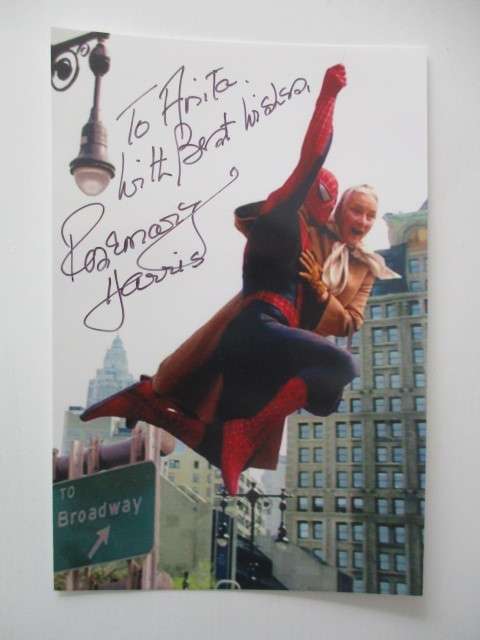 To Anita.
With Best Wishes,
Rosemary
Harris
TO
Broadway